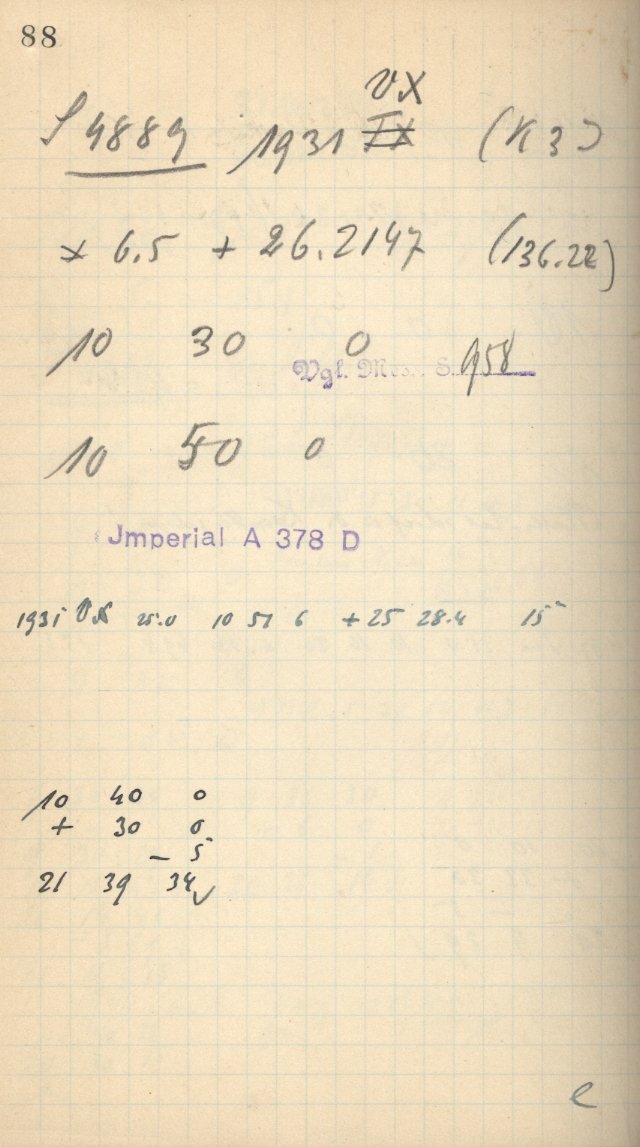 88
VX
S 4889 1931 IX (K3)
x 6.5 + 26.2147 (136.22)
10 30 0
Vgl. Mess. S. 958
10 50 0
Jmperial A 378 D
1931 VX 25.0 10 51 6 + 25 28.4 15
10 40 0
+ 30 0
– 5
21 39 34 ✓
e